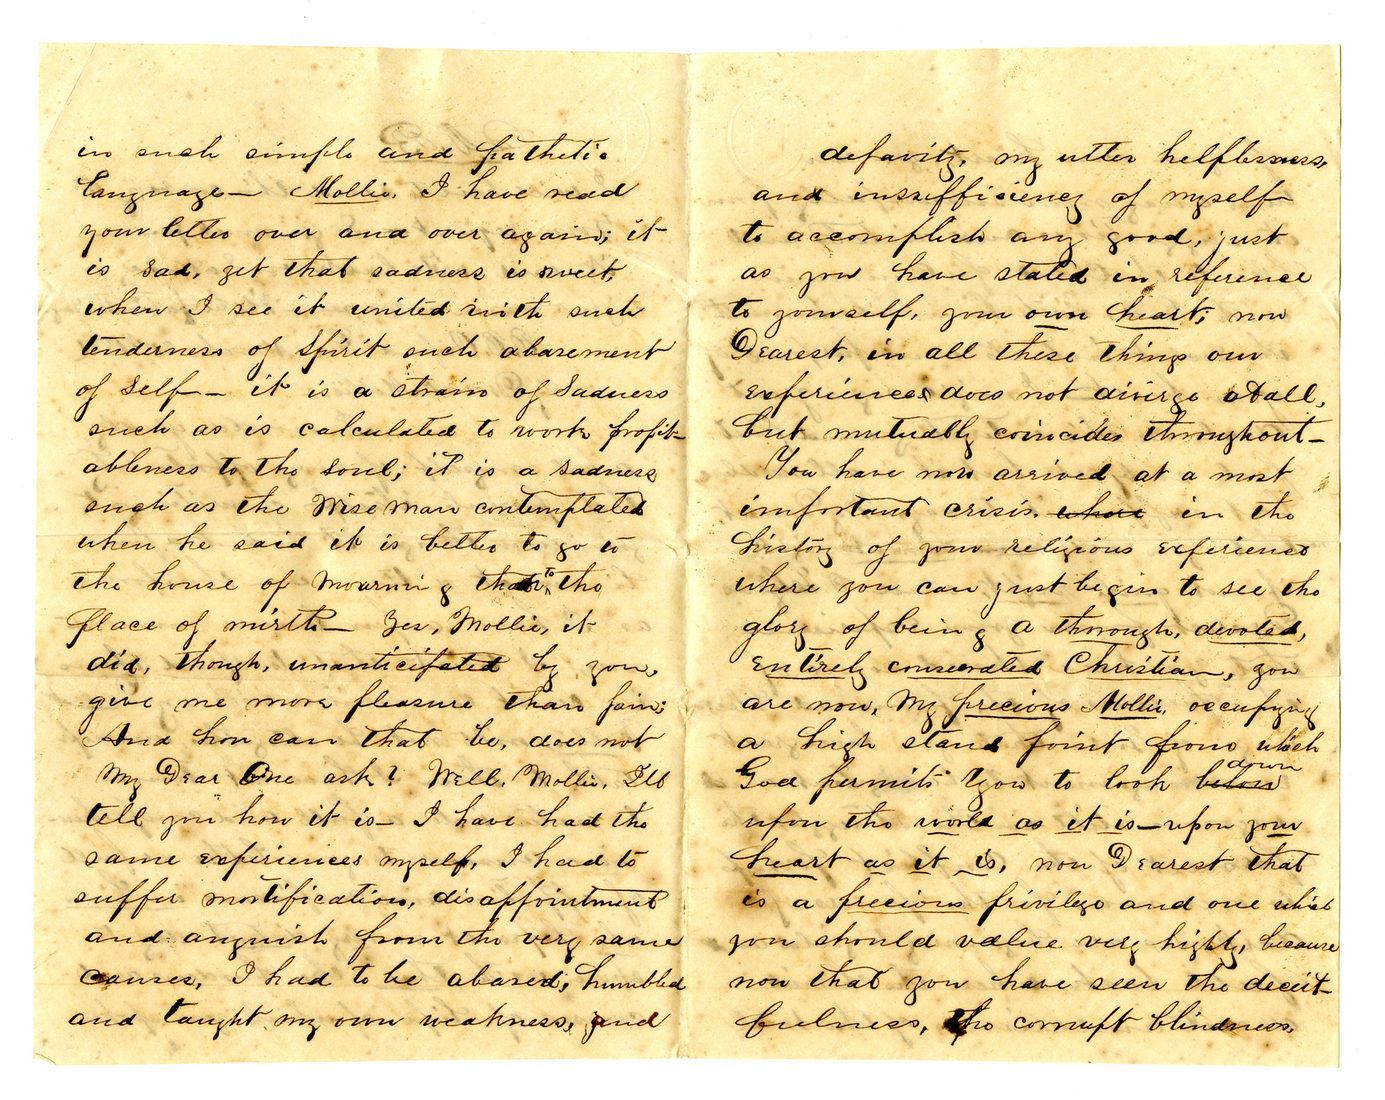 in such simple and pathetic
language— Mollie, I have read
your letter over and over again; it
is sad, yet that sadness is sweet,
when I see it united with such
tenderness of Spirit such abasement
of Self— it is a strain of Sadness
such as is calculated to work profit-
ableness to the soul; it is a sadness
such as the Wise man contemplated
when he said it is better to go to
the house of mourning than to the
place of mirth— Yes, Mollie, it
did, though, unanticipated by you,
give me more pleasure than pain;
And how can that be, does not
My Dear One ask? Well, Mollie, Ill
tell you how it is— I have had the
same experiences myself, I had to
suffer mortification, disappointment
and anguish from the very same
causes, I had to be abased, humbled
and taught my own weakness, and
depavity, my utter helplessness,
and insufficiency of myself
to accomplish any good, just
as you have stated in reference
to yourself, your own heart, now
Dearest, in all these things our
experiences does not diverge atall,
but mutually coincides throughout—
You have now arrived at a most
important crisis, where in the
history of your religious experience
where you can just begin to see the
glory of being a thorough, devoted,
entirely consecrated Christian, you
are now, My precious Mollie, occupying
a high stand point from which
God permits you to look below down
upon the world as it is—upon your
heart as it is, now Dearest that
is a precious privilege and one which
you should value very highly, because
now that you have seen the deceit-
fulness, the corrupt blindness,